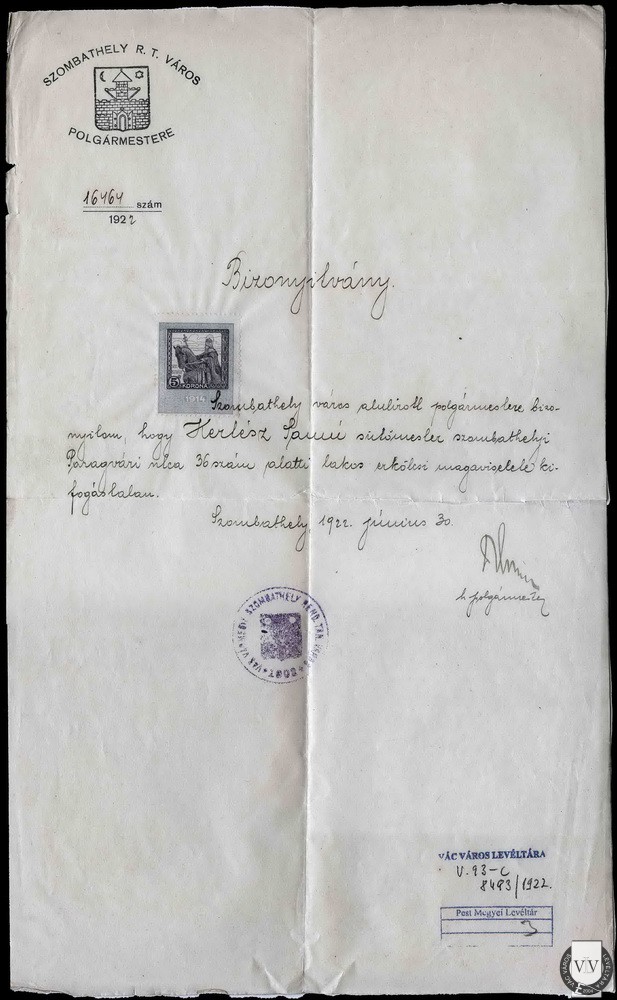 SZOMBATHELY R. T. VÁROS
POLGÁRMESTERE
16464 szám
1922
Bizonyitvány.
5 KORONA
1914
Szombathely város alulirott polgármestere bizo-
nyitom, hogy Hertész Samú sütőmester szombathelyi
Paragvári utca 36 szám alatti lakos erkölcsi magaviselete ki-
fogástalan.
Szombathely, 1922. június 30.
h. polgármester
VAS VÁRMEGYE SZOMBATHELY REND. TAN. VÁROS
VÁC VÁROS LEVÉLTÁRA
V. 93-C
8493/1922.
Pest Megyei Levéltár
3
VÁC VÁROS LEVÉLTÁRA
VVL